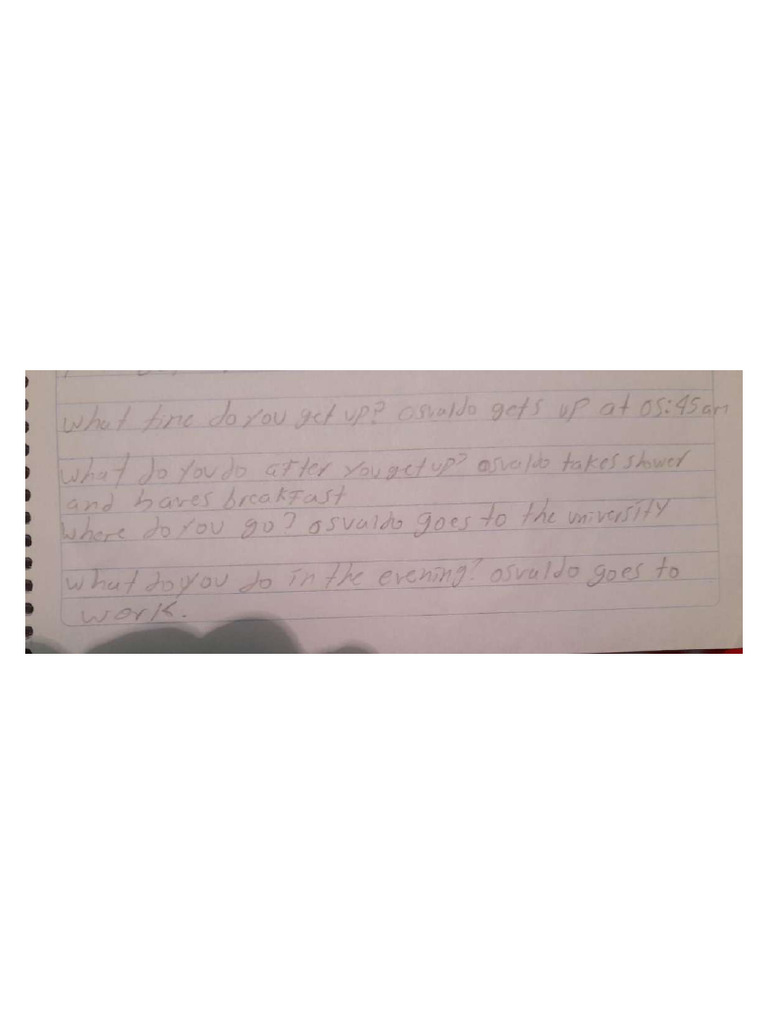 What time do you get up? Osvaldo gets up at 05:45am
What do you do after you get up? osvaldo takes shower
and haves breakfast
Where do you go? osvaldo goes to the university
What do you do in the evening? osvaldo goes to
work.